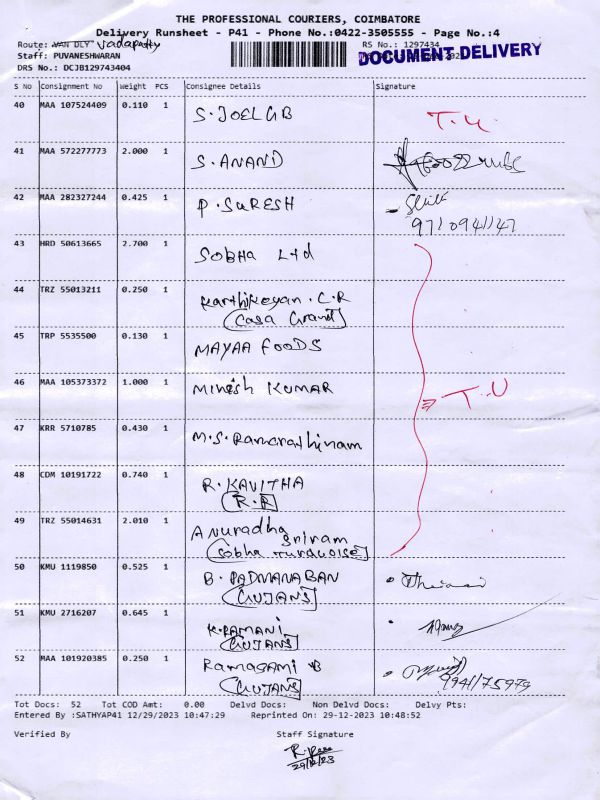 THE PROFESSIONAL COURIERS, COIMBATORE
Delivery Runsheet - P41 - Phone No.:0422-3505555 - Page No.:4
Route: VAN DLY Vadapatty
RS No.: 1297434
Staff: PUVANESHWARAN
DOCUMENT DELIVERY
DRS No.: DCJB129743404
S No Consignment No Weight PCS Consignee Details Signature
40 MAA 107524409 0.110 1 S. JOEL GB T.U
41 MAA 572277773 2.000 1 S. ANAND
42 MAA 282327244 0.425 1 P. SURESH
9710941147
43 HRD 50613665 2.700 1 SOBHA Ltd
44 TRZ 55013211 0.250 1 Karthikeyan . C. R
(Casa Grand)
45 TRP 5535500 0.130 1 MAYAA FOODS
46 MAA 105373372 1.000 1 Minesh KUMAR T.U
47 KRR 5710785 0.430 1 M.S. Ramarathinam
48 CDM 10191722 0.740 1 R. KAVITHA
(R.R)
49 TRZ 55014631 2.010 1 Anuradha
Sriram
(Sobha Turquoise)
50 KMU 1119850 0.525 1 B. PADMANABAN
(GUJANS)
51 KMU 2716207 0.645 1 K. RAMANI
(GUJANS)
52 MAA 101920385 0.250 1 Ramasami B
(GUJANS)
9941175979
Tot Docs: 52 Tot COD Amt: 0.00 Delvd Docs: Non Delvd Docs: Delvy Pts:
Entered By :SATHYAP41 12/29/2023 10:47:29 Reprinted On: 29-12-2023 10:48:52
Verified By Staff Signature
29/12/23